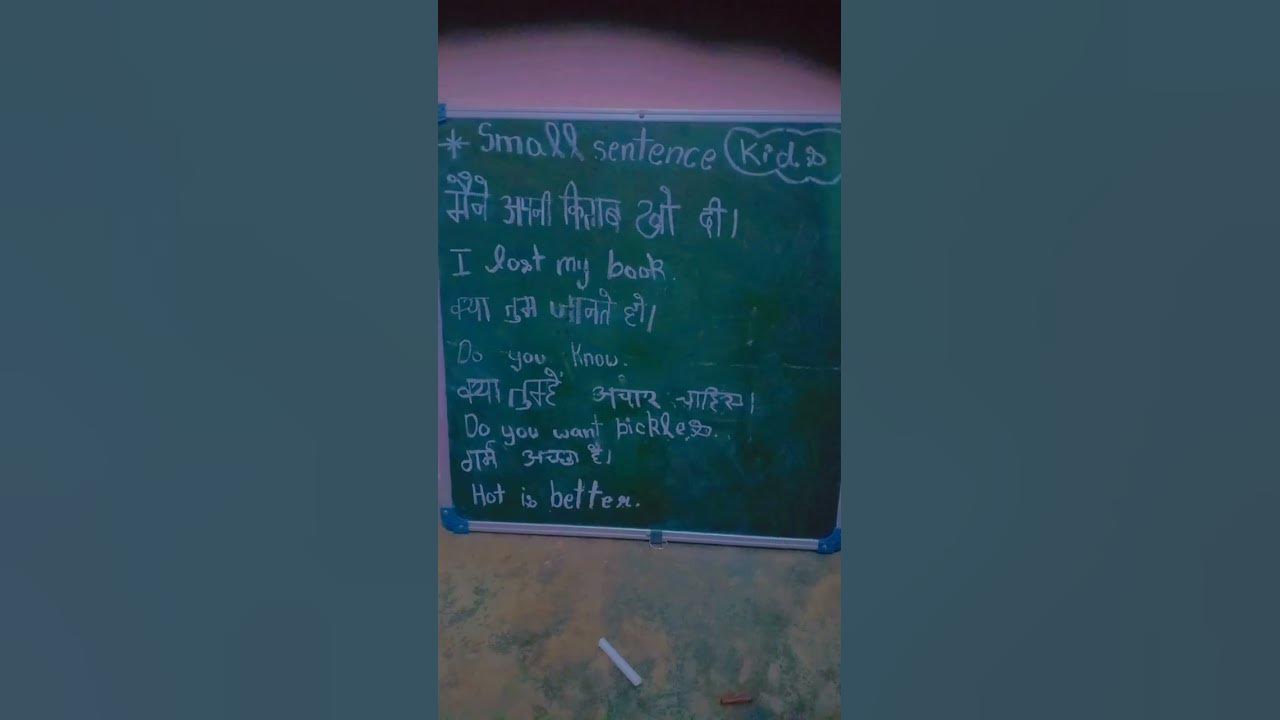 * Small sentence Kids
मैने अपनी किताब खो दी।
I lost my book.
क्या तुम जानते हो।
Do you know.
क्या तुम्हें अचार चाहिए।
Do you want pickles.
गर्म अच्छा है।
Hot is better.